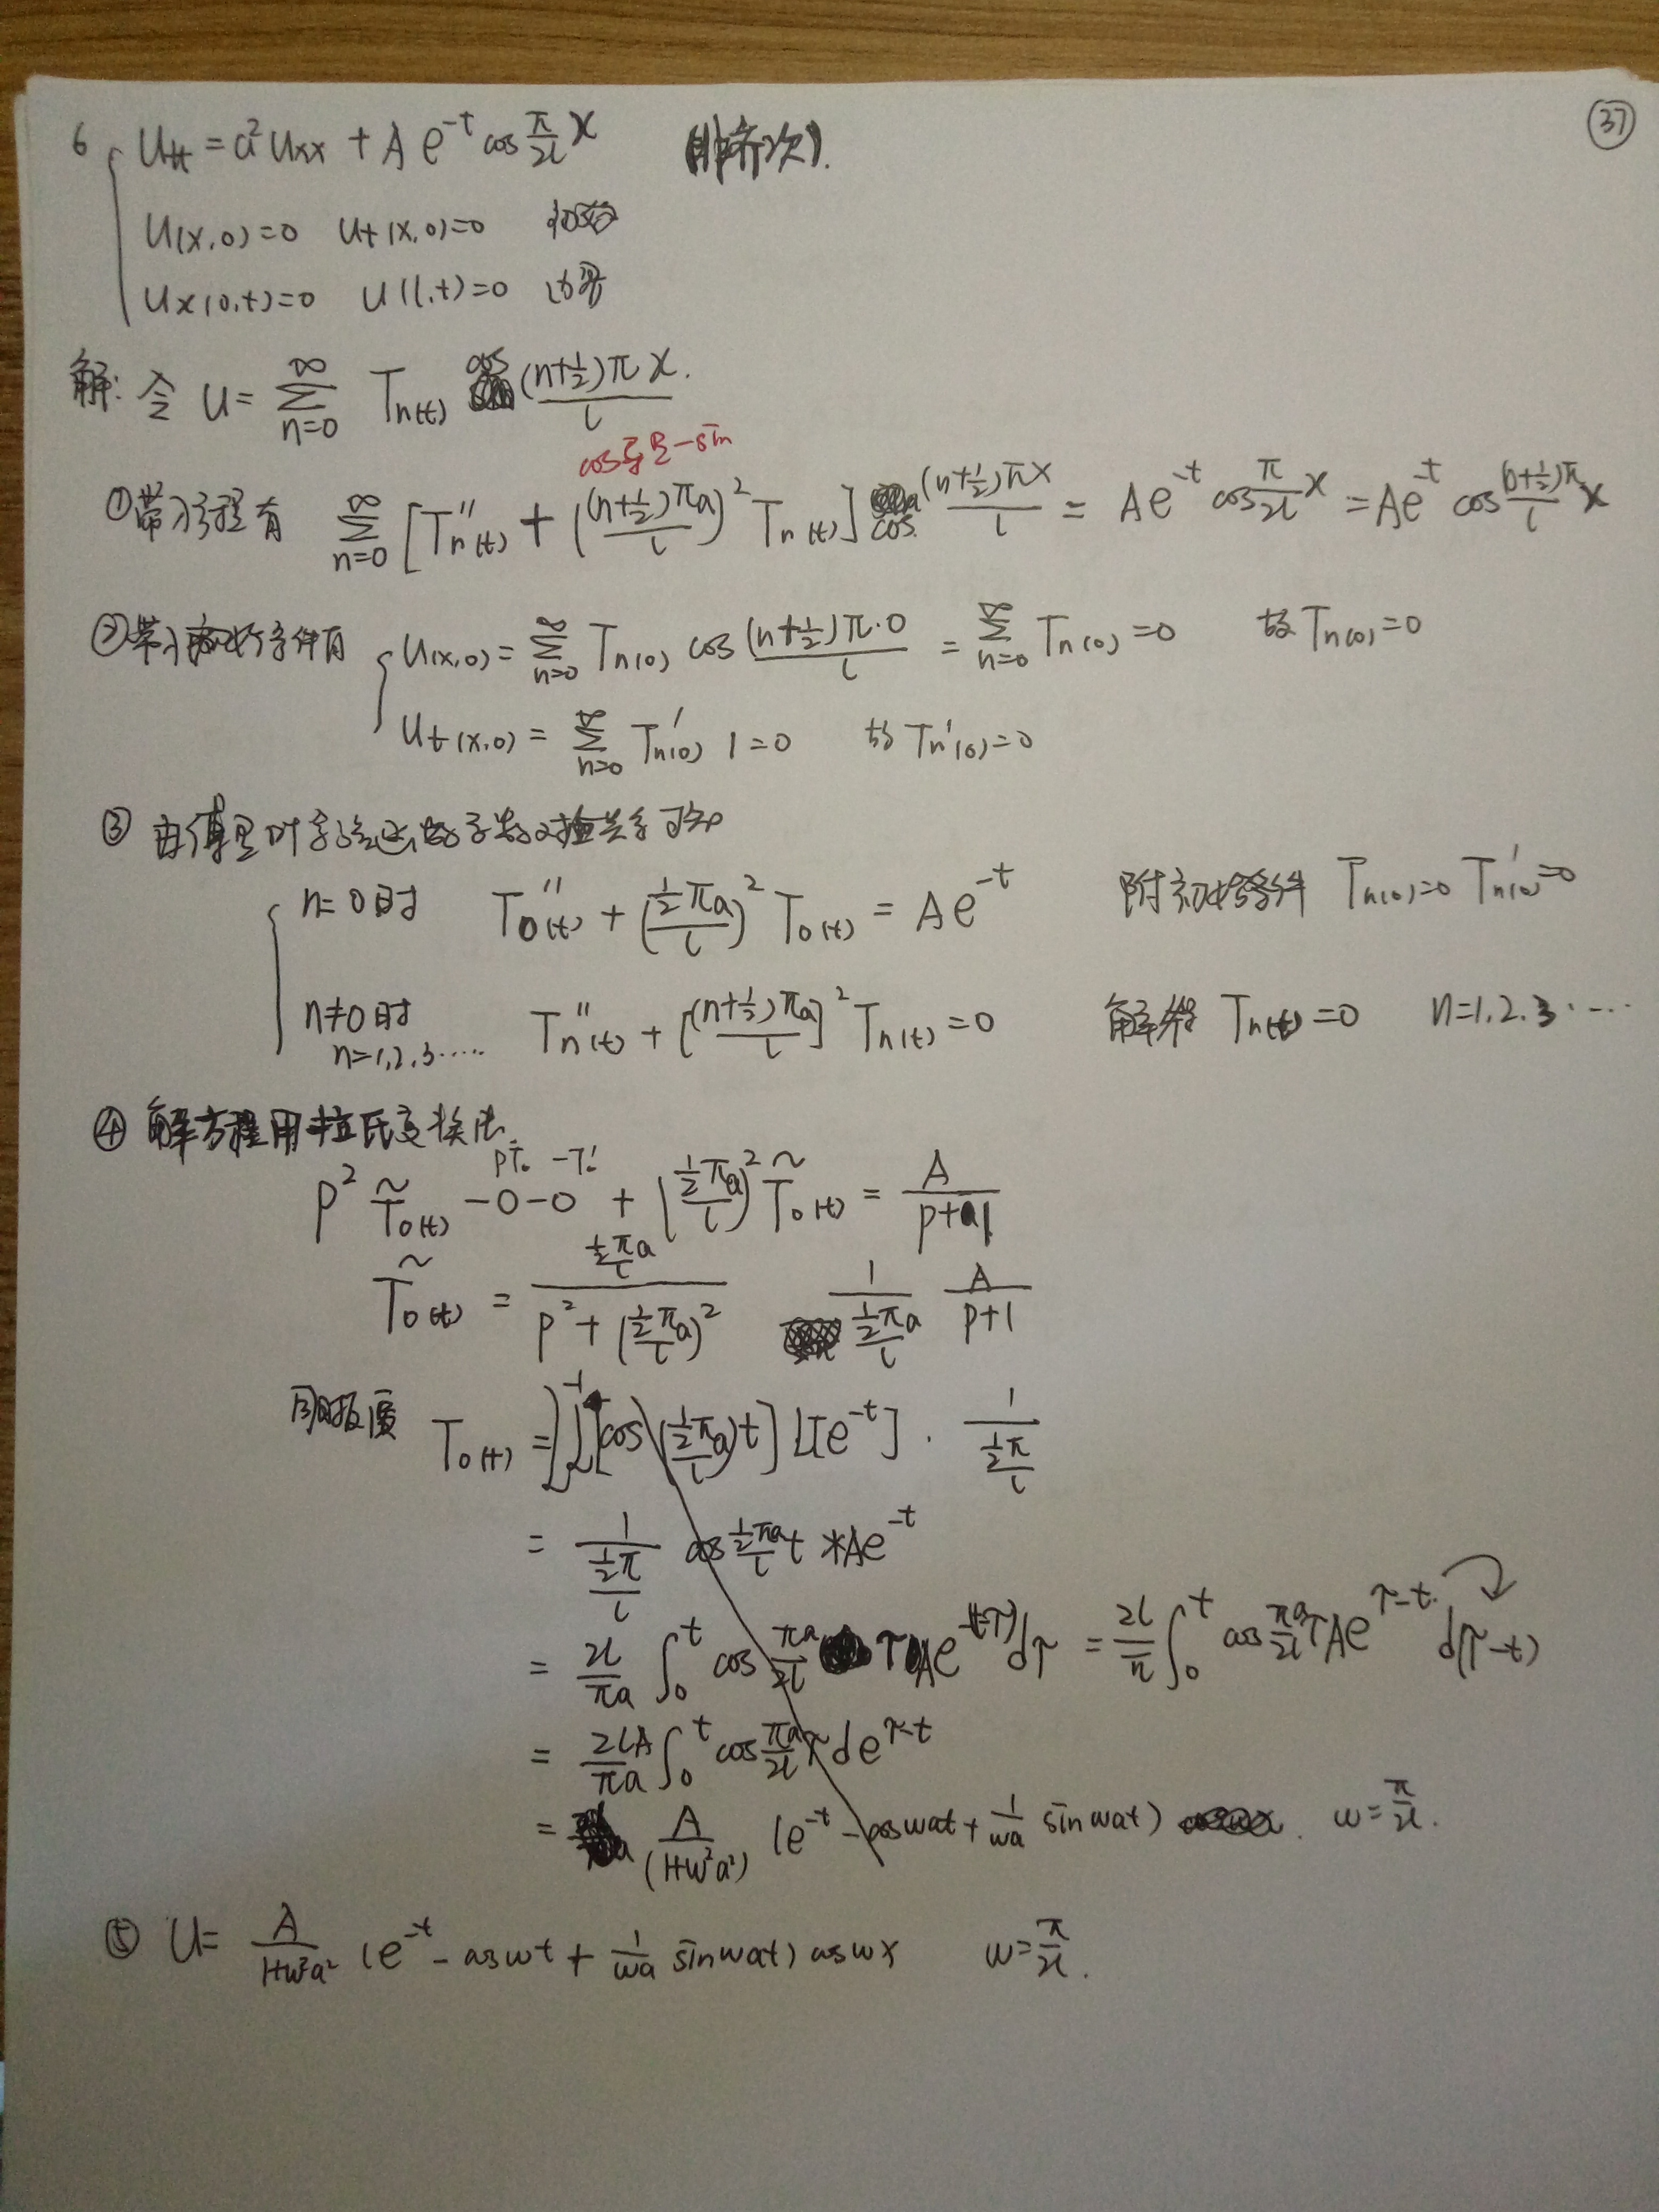 37
6 Utt = a²Uxx + A e^-t cos π/2l x (非齐次).
U(x,0)=0 Ut(x,0)=0 初始
Ux(0,t)=0 U(l,t)=0 边界
解: 令 U= ∑_{n=0}^∞ Tn(t) cos (n+½)πx/l.
cos导是-sin
①带入方程有 ∑_{n=0}^∞ [Tn''(t) + ((n+½)πa/l)² Tn(t)] cos (n+½)πx/l = Ae^-t cos π/2l x = Ae^-t cos (n+½)π/l x
②带入初始条件有 U(x,0) = ∑_{n=0}^∞ Tn(0) cos (n+½)π·0/l = ∑_{n=0}^∞ Tn(0) =0 故Tn(0)=0
Ut(x,0) = ∑_{n=0}^∞ Tn'(0) 1=0 故Tn'(0)=0
③ 由傅里叶 可知
n=0时 T0''(t) + (½πa/l)² T0(t) = Ae^-t 附初始条件 Tn(0)=0 Tn'(0)=0
n≠0时 Tn''(t) + [(n+½)πa/l]² Tn(t)=0 解得 Tn(t)=0 n=1.2.3.....
n=1,2,3.....
④ 解方程用拉氏变换法
pT0 -T0'
p² T̃0(t) -0-0 + (½πa/l)² T̃0(t) = A/p+1
T̃0(t) = ½πa/l / p²+(½πa/l)² 1/½πa/l A/p+1
T0(t) = L^-1[L[cos(½πa/l)t] L[e^-t] · 1/½π/l
= 1/½π/l cos ½πa/l t * Ae^-t
= 2l/πa ∫_0^t cos πa/2l τ Ae^-(t-τ) dτ = 2l/π ∫_0^t cos πa/2l τ Ae^τ-t d(τ-t)
= 2lA/πa ∫_0^t cos πa/2l τ de^τ-t
= A/(1+w²a²) (e^-t - cos wat + 1/wa sin wat) w=π/2l.
⑤ U= A/1+w²a² (e^-t - cos wt + 1/wa sin wat) cos wx w=π/2l.